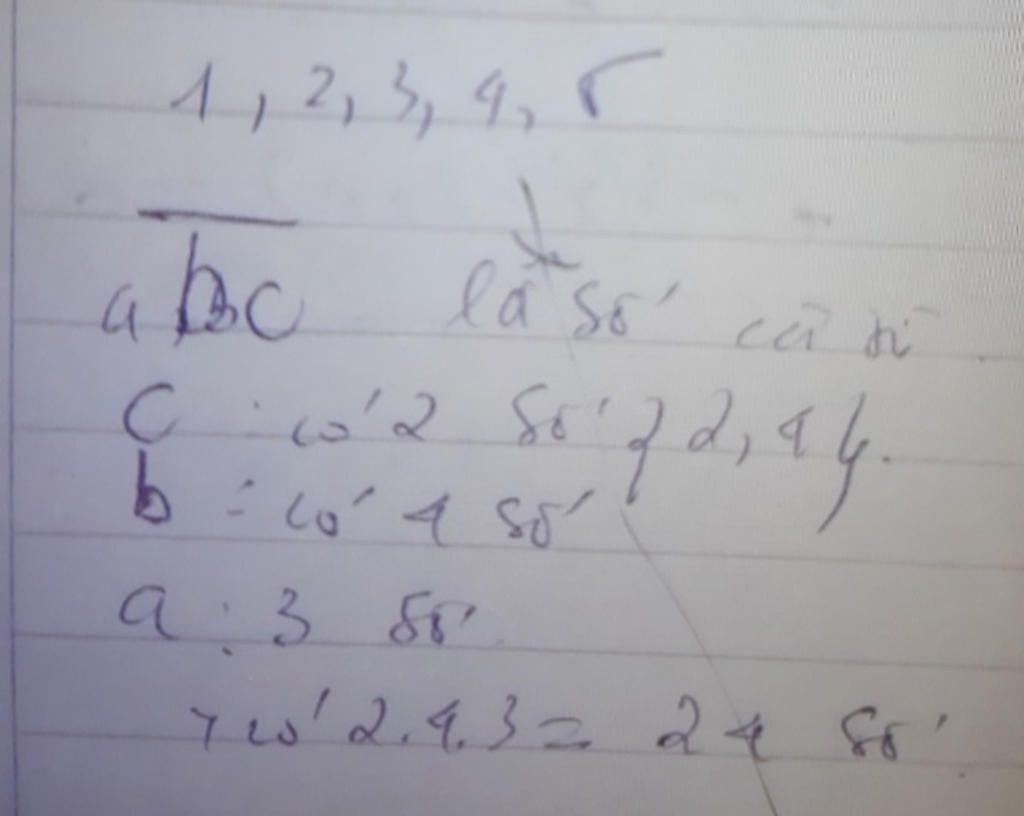 1, 2, 3, 4, 5
abc là số cần
c : có 2 số {2, 4}.
b : có 4 số
a : 3 số
→ có 2.4.3 = 24 số.